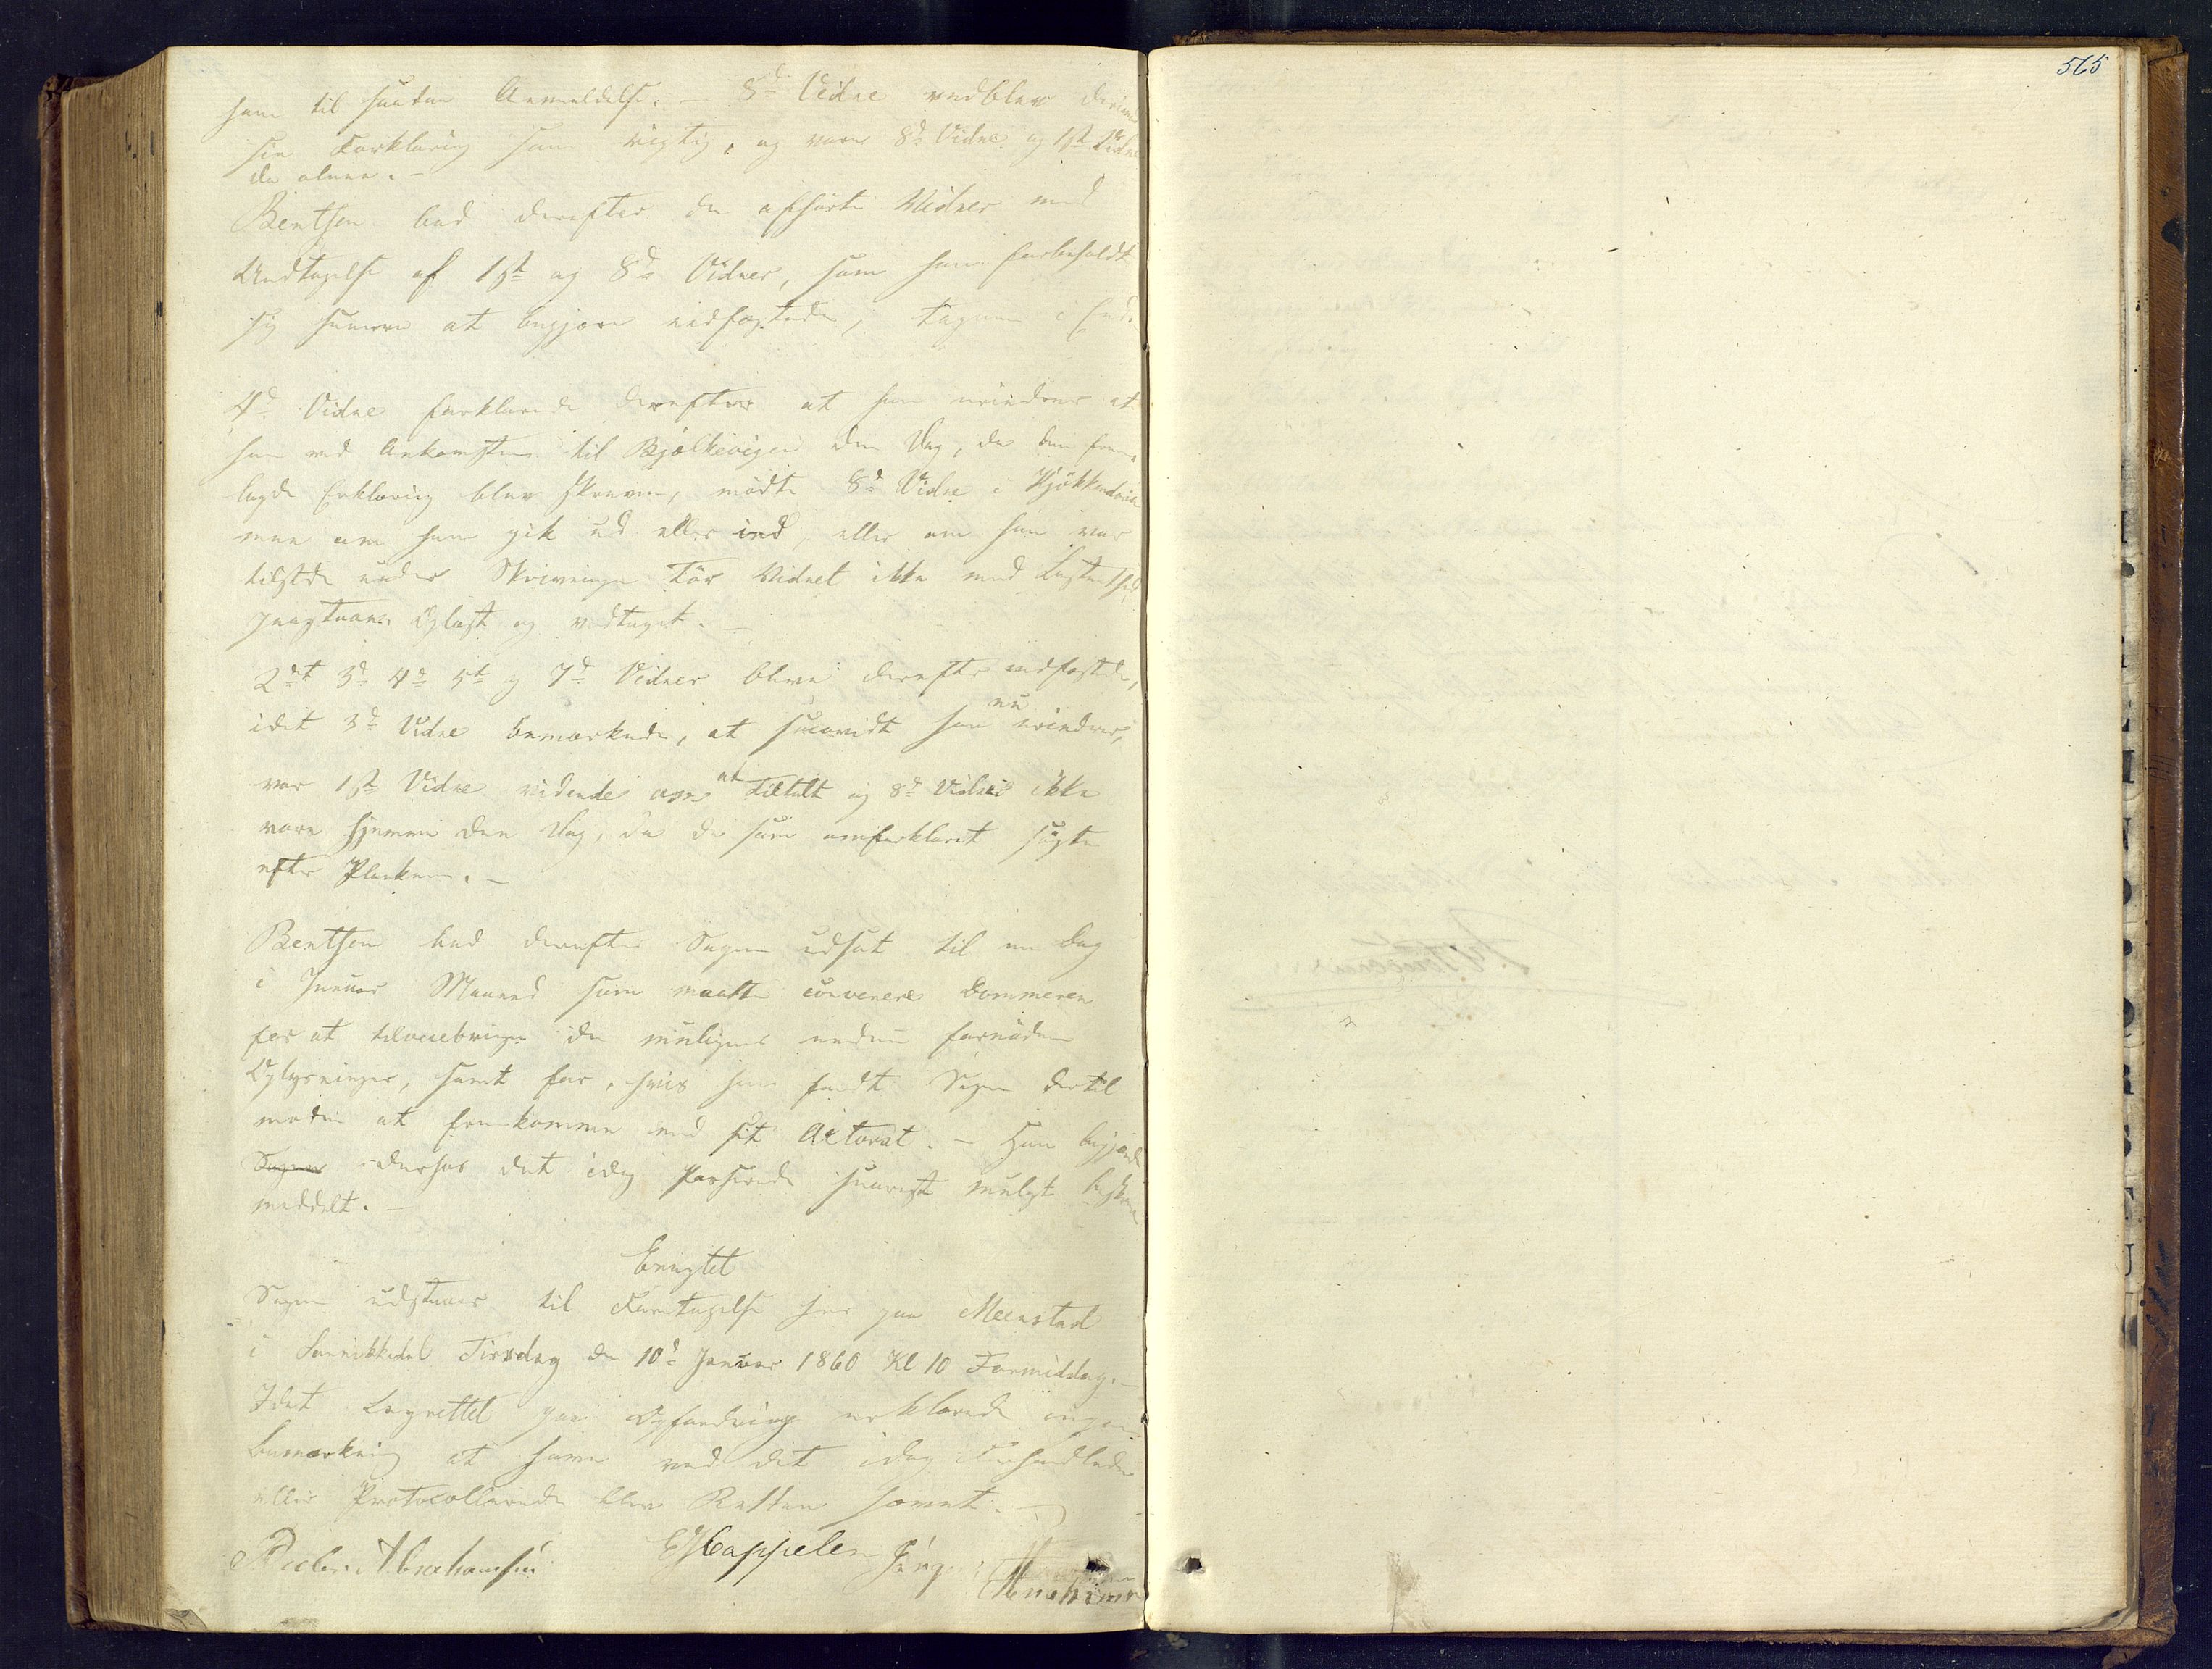 565
ham til saadan Anmeldelse. — 8de Vidne vedblev
sin Forklaring som rigtig, og vare 8de Vidne og 1ste Vidne
da alene. —
Bentsen bad derefter de afhørte Vidner med
Undtagelse af 1ste og 8de Vidner, som han forbeholdt
sig senere at begjære edfæstede, tagne i Eed.
4de Vidne forklarede derefter at han erindrer at
han ved Ankomsten til Bjelkevigen den Dag, da den frem-
lagde Erklæring blev skreven, mødte 8de Vidne i Kjøkkendøren
men om han gik ud eller ind, eller om han var
tilstede under Skrivningen tør Vidnet ikke med Bestemthed
paastaae. Oplæst og vedtaget. —
2det 3de 4de 5te og 7de Vidner bleve derefter edfæstede,
idet 3de Vidne bemærkede, at saavidt han nu erindrer,
var 1ste Vidne vidende om at Tiltalte og 8de Vidne ikke
vare hjemme den Dag, da de som omforklaret søgte
efter Planken. —
Bentsen bad derefter Sagen udsat til en Dag
i Januar Maaned som maatte convenere Dommeren
for at tilveiebringe de muligens endnu fornødne
Oplysninger, samt for, hvis han fandt Sagen dertil
moden at fremkomme med sit Actorat. — Han begjærede
Sagen derhos det idag Passerede snarest muligt beskreven
meddelt. —
Eragtet
Sagen udstaaer til Foretagelse her paa Meenstad
i Sannikedal Tirsdag den 10de Januar 1860 Kl 10 Formiddag. —
Idet Lagrettet paa Opfordring erklærede ingen
Bemærkning at have ved det idag Forhandlede
eller Protocollerede blev Retten hævet. —
Peder Abrahamsen Cappelen